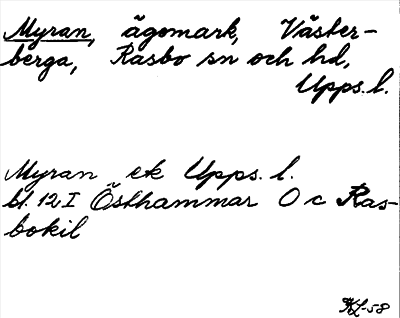 Myran, ägomark, Väster-
berga, Rasbo sn och hd,
Upps. l.
Myran ek Upps. l.
bl. 12 I Östhammar O c Ras-
bokil
KL-58